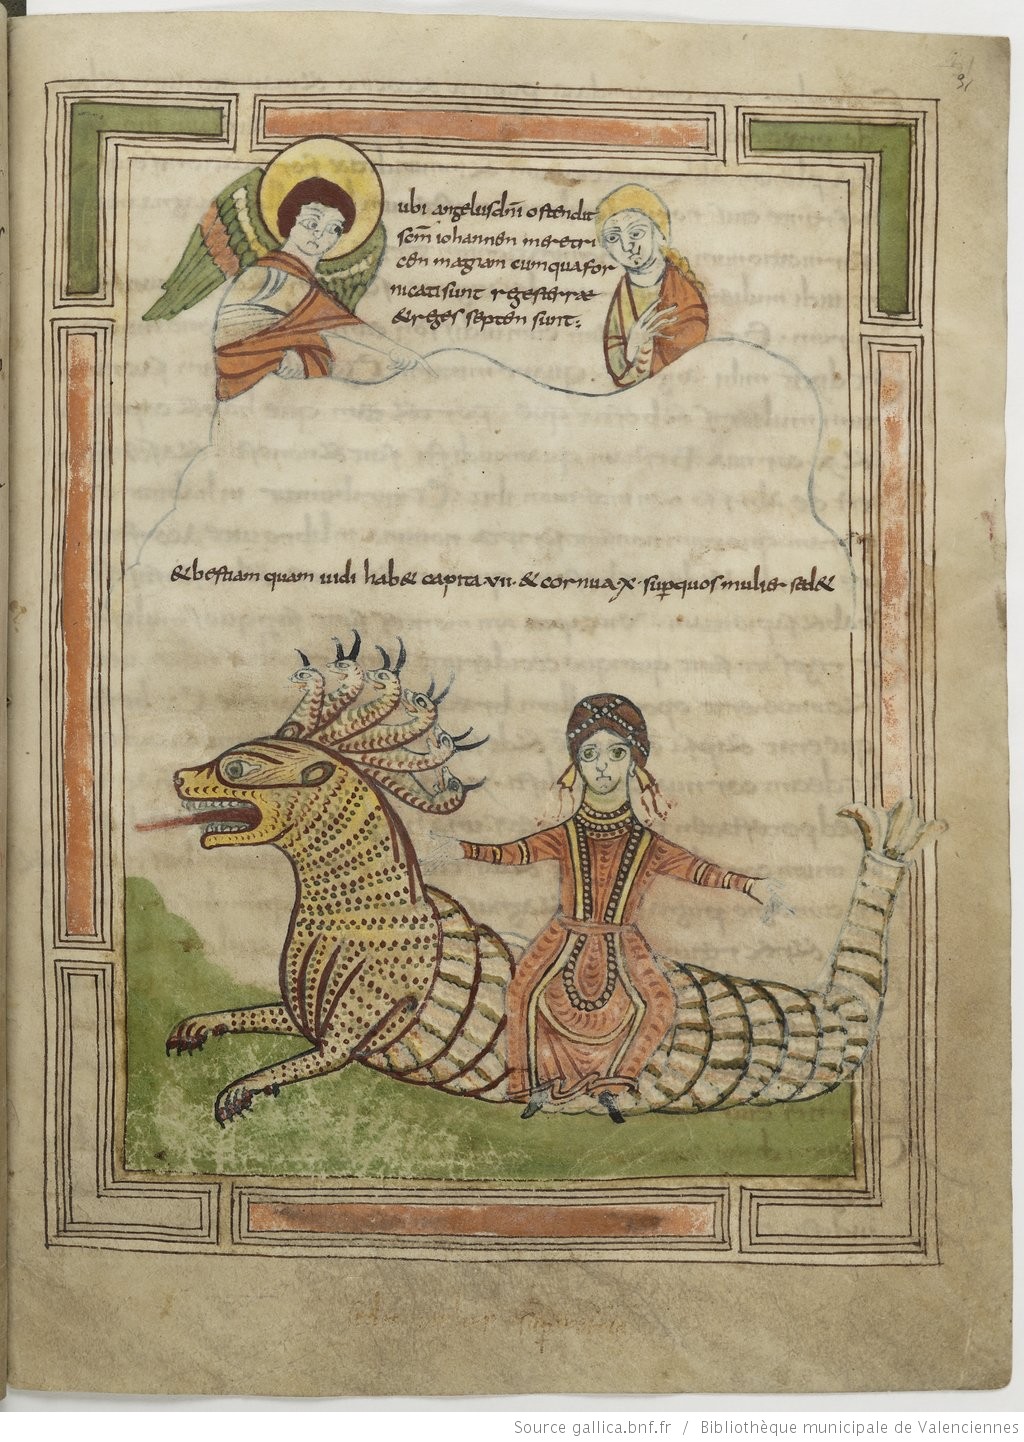 ubi angelus dnī ostendit
scm̄ iohannen meretri
cen magnam cum qua for
nicati sunt reges terræ
& reges septen sunt;
& bestiam quam uidi hab& capita·vii· & cornua·x· sup quos mulier sed&
Source gallica.bnf.fr / Bibliothèque municipale de Valenciennes